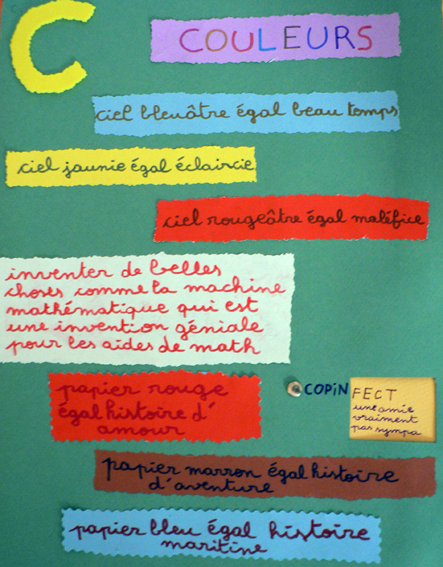 C
COULEURS
ciel bleuâtre égal beau temps
ciel jaunie égal éclaircie
ciel rougeâtre égal maléfice
inventer de belles
choses comme la machine
mathématique qui est
une invention géniale
pour les aides de math
papier rouge
égal histoire d'
amour
COPiN
FECT
une amie
vraiment
pas sympa
papier marron égal histoire
d'aventure
papier bleu égal histoire
maritine